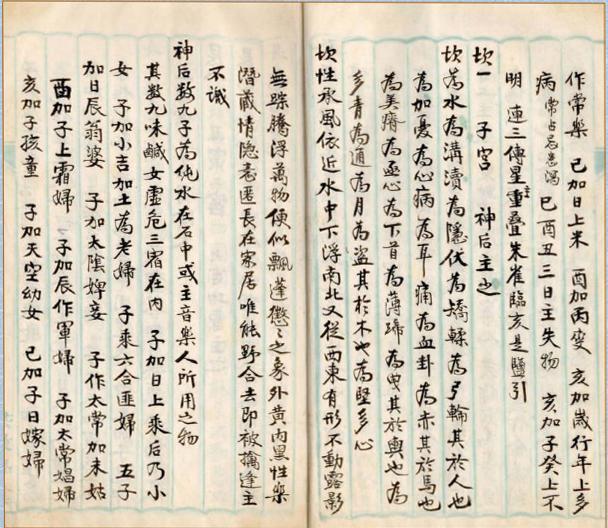 作常樂 巳加日上米 酉加丙安 亥加歲行年上多
病常占忌患瀉 巳酉丑三日主失物 亥加子癸上不
明 連三傳星主重疊朱雀臨亥是鹽引
坎一 子宮 神后主之
坎為水為溝瀆為隱伏為矯輮為弓輪其於人也
為加憂為心病為耳痛為血卦為赤其於馬也
為美瘠為亟心為下首為薄蹄為曳其於輿也為
多眚為通為月為盜其於木也為堅多心
坎性承風依近水中下浮南北又從西東有形不動露影
無蹤騰浮萬物便似飄蓬懲之之象外黃內黑性樂
潛藏情隱耆匿長在家居唯能野合去即被擒逢主
不識
神后数九子為純水在石中或主音樂人所用之物
其数九味鹹女虛危三宿在内 子加日上乘后乃小
女 子加小吉加土為老婦 子乘六合匪婦 五子
加日辰翁婆 子加太陰婢妾 子作太常加未姑
酉加子上霜婦 子加辰作軍婦 子加太常娼婦
亥加子孩童 子加天空幼女 巳加子日嫁婦